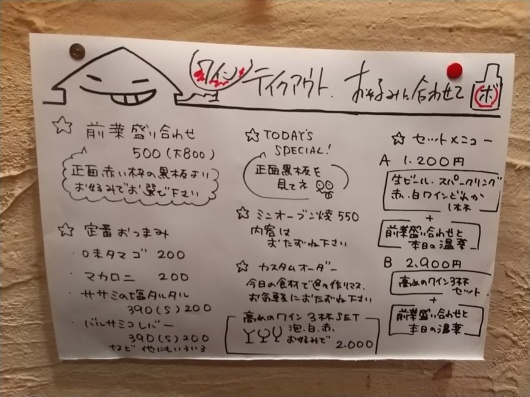 ワイン テイクアウト. お好みに合わせて ボ
☆ 前菜盛り合わせ
500 (大800)
正面赤い枠の黒板より
お好みでお選び下さい
☆ 定番おつまみ
・ウまタマゴ 200
・マカロニ 200
・ササミの塩タルタル
390(S)200
・バルサミコレバー
390(S)200
など 他にもいろいろ
☆ TODAY'S
SPECIAL!
正面黒板を
見て
☆ ミニオーブン焼 550
内容は
おたずね下さい
☆ カスタムオーダー
今日の食材で色々作りマス
お気軽におたずね下さい
高めのワイン3杯SET
泡.白.赤.
お好みで 2.000
☆ セットメニュー
A 1.200円
生ビール.スパークリング
赤.白ワインどれか
1杯
+
前菜盛り合わせと
本日の温菜
B 2.900円
高めのワイン3杯
セット
+
前菜盛り合わせと
本日の温菜